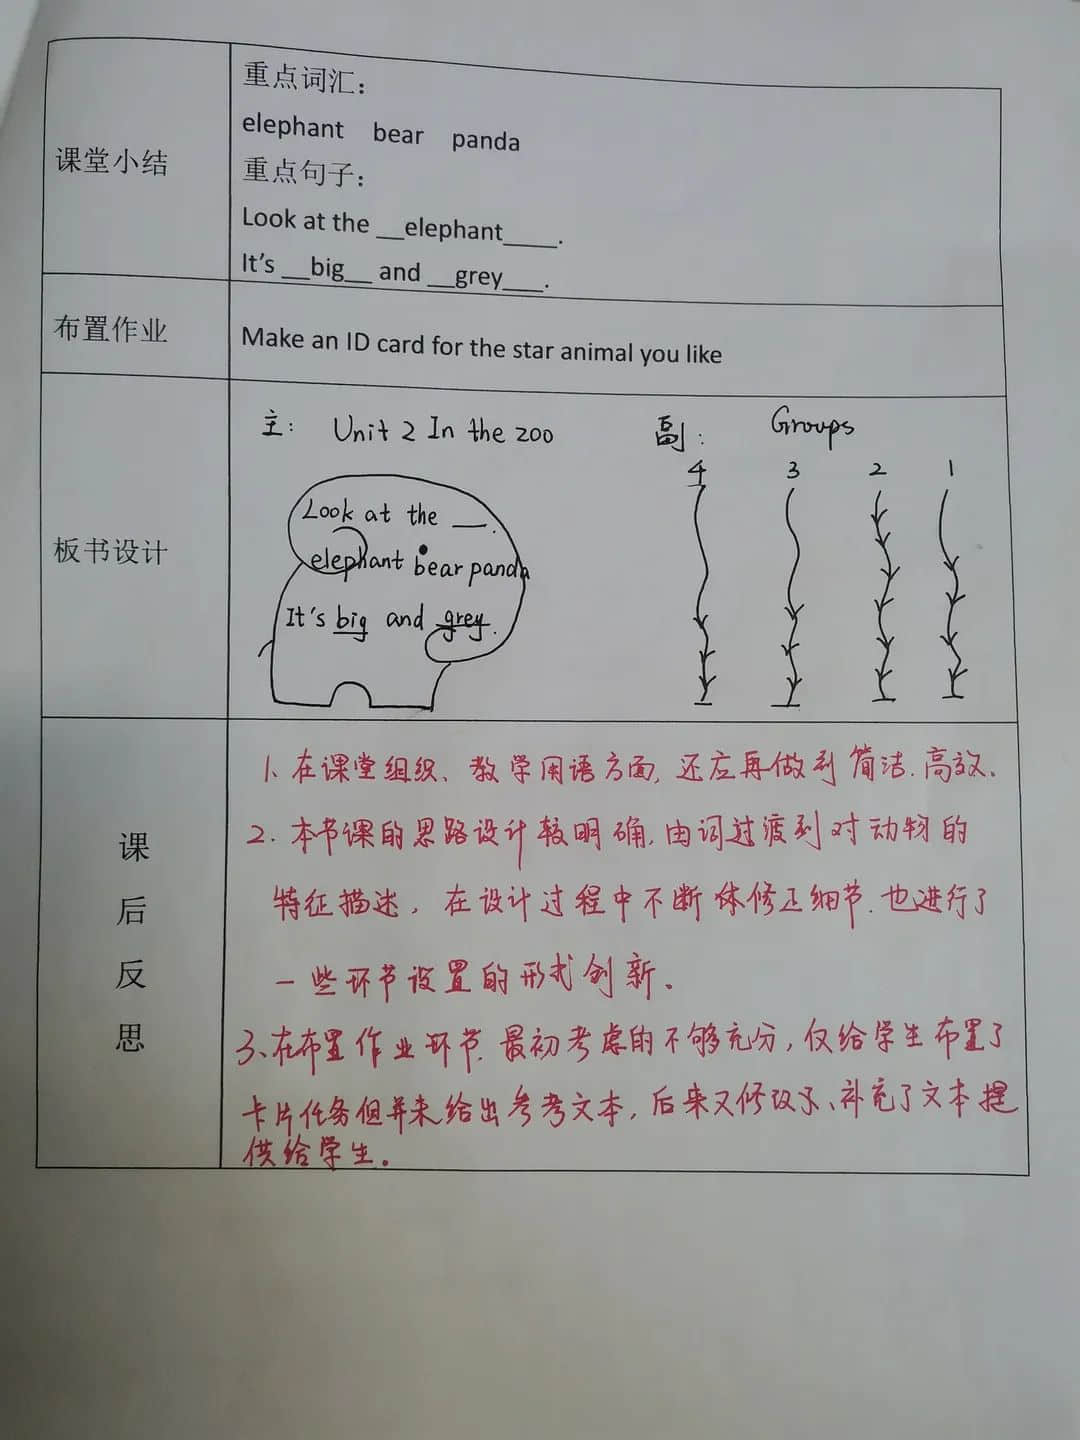 课堂小结
重点词汇：
elephant bear panda
重点句子：
Look at the __elephant____.
It's __big__ and __grey___.
布置作业
Make an ID card for the star animal you like
板书设计
主: Unit 2 In the zoo
Look at the __.
elephant bear panda
It's big and grey.
副: Groups
4 3 2 1
课后反思
1、在课堂组织、教学用语方面,还应再做到简洁.高效.
2.本节课的思路设计较明确,由词过渡到对动物的
特征描述，在设计过程中不断修正细节.也进行了
一些环节设置的形式创新.
3、在布置作业环节.最初考虑的不够充分,仅给学生布置了
卡片任务但并未给出参考文本,后来又修改了、补充了文本提
供给学生.